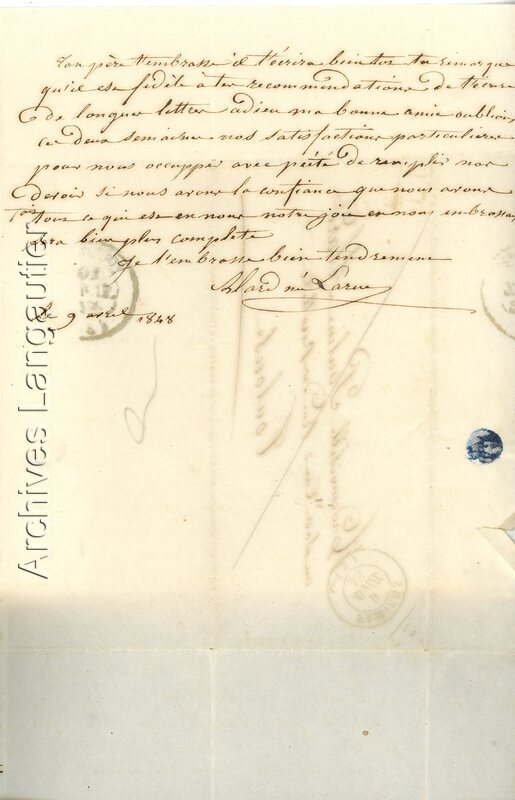 ton père t'embrasse il t'écrira bien tos tu remarque
qu'il est fidèle à tes recommendations de t'écrire
de longues lettres adieu ma bonne amie oublions
ces deux semaines nos satisfactions particulières
pour nous occuppé avec piété de remplir nos
devoir si nous avons la confiance que nous avons
Tous ce qui est en nous notre joie en nous embrassan
sera bien plus complète
Je t'embrasse bien tendrement
Alard né Larue
le 9 avril 1848
Archives Langautier